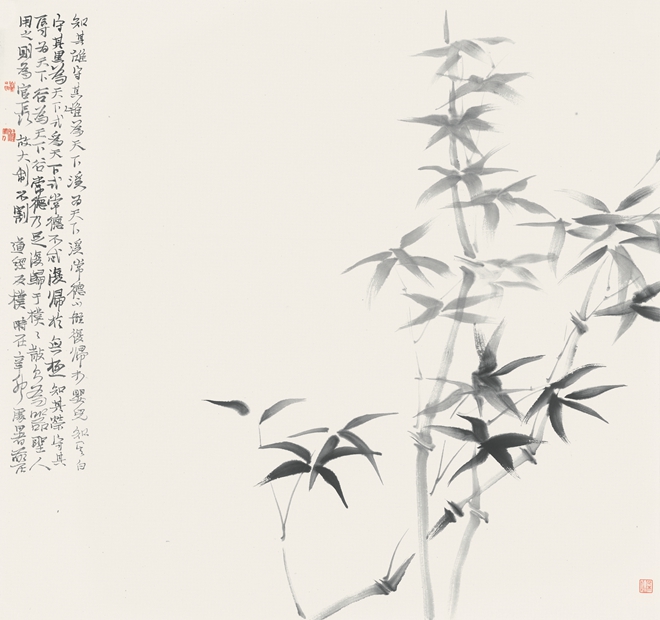 知其雄守其雌為天下溪為天下溪常德不離復歸於嬰兒知其白
守其黑為天下式為天下式常德不忒復歸於無極知其榮守其
辱為天下谷為天下谷常德乃足復歸于樸〻散則為器聖人
用之則為官長故大制不割 道經反樸 時在辛卯